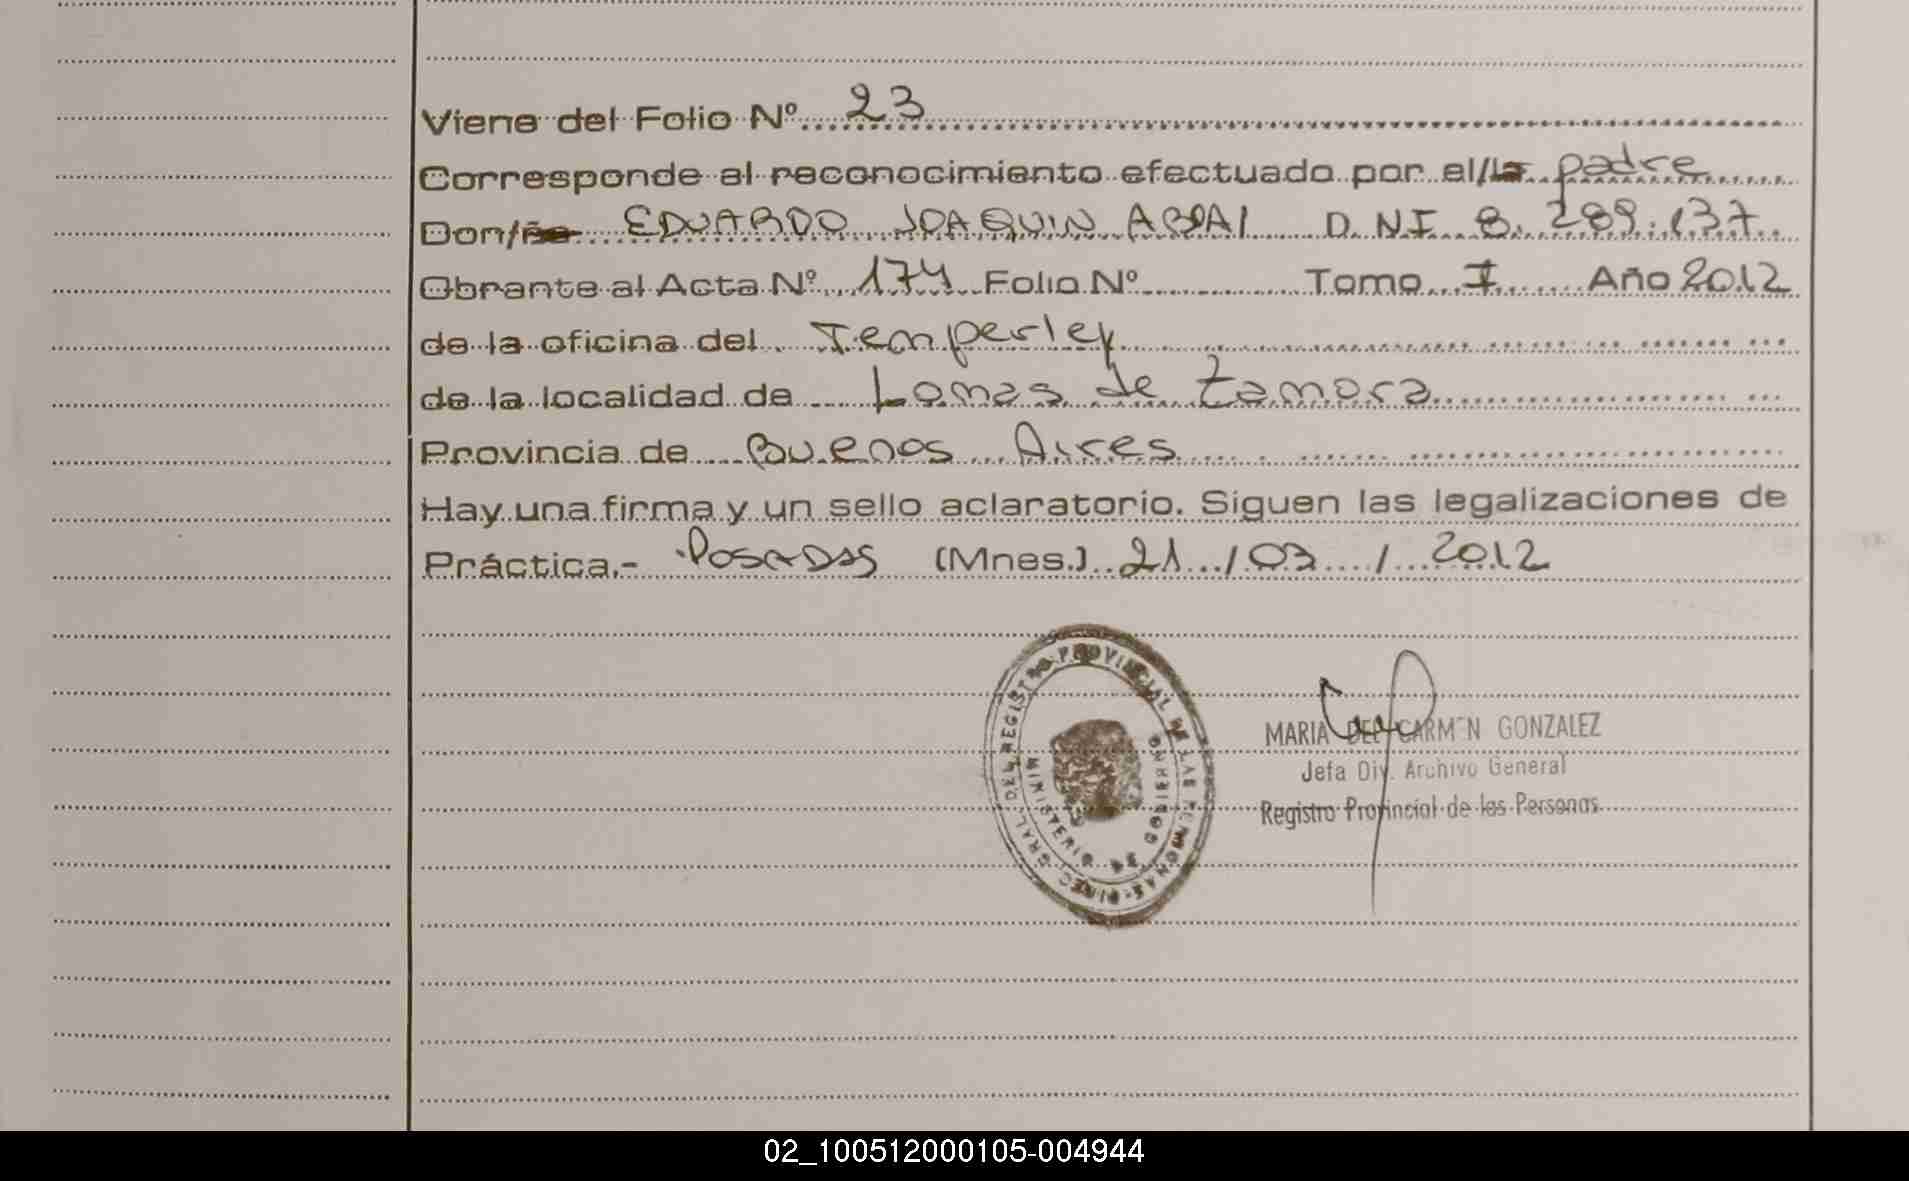 Viene del Folio Nº 23
Corresponde al reconocimiento efectuado por el/la padre
Don/ña EDUARDO JOAQUIN ABDAI D.NI 8.289.137
Obrante al Acta Nº 174 Folio Nº Tomo I Año 2012
de la oficina del Temperley
de la localidad de Lomas de Zamora
Provincia de Buenos Aires
Hay una firma y un sello aclaratorio. Siguen las legalizaciones de
Práctica.- Posadas (Mnes.) 21 / 03 / 2012
DIREC. GRAL. DEL REGISTRO PROVINCIAL DE LAS PERSONAS
MINISTERIO DE GOBIERNO
MARIA DEL CARMEN GONZALEZ
Jefa Div. Archivo General
Registro Provincial de las Personas
02_100512000105-004944